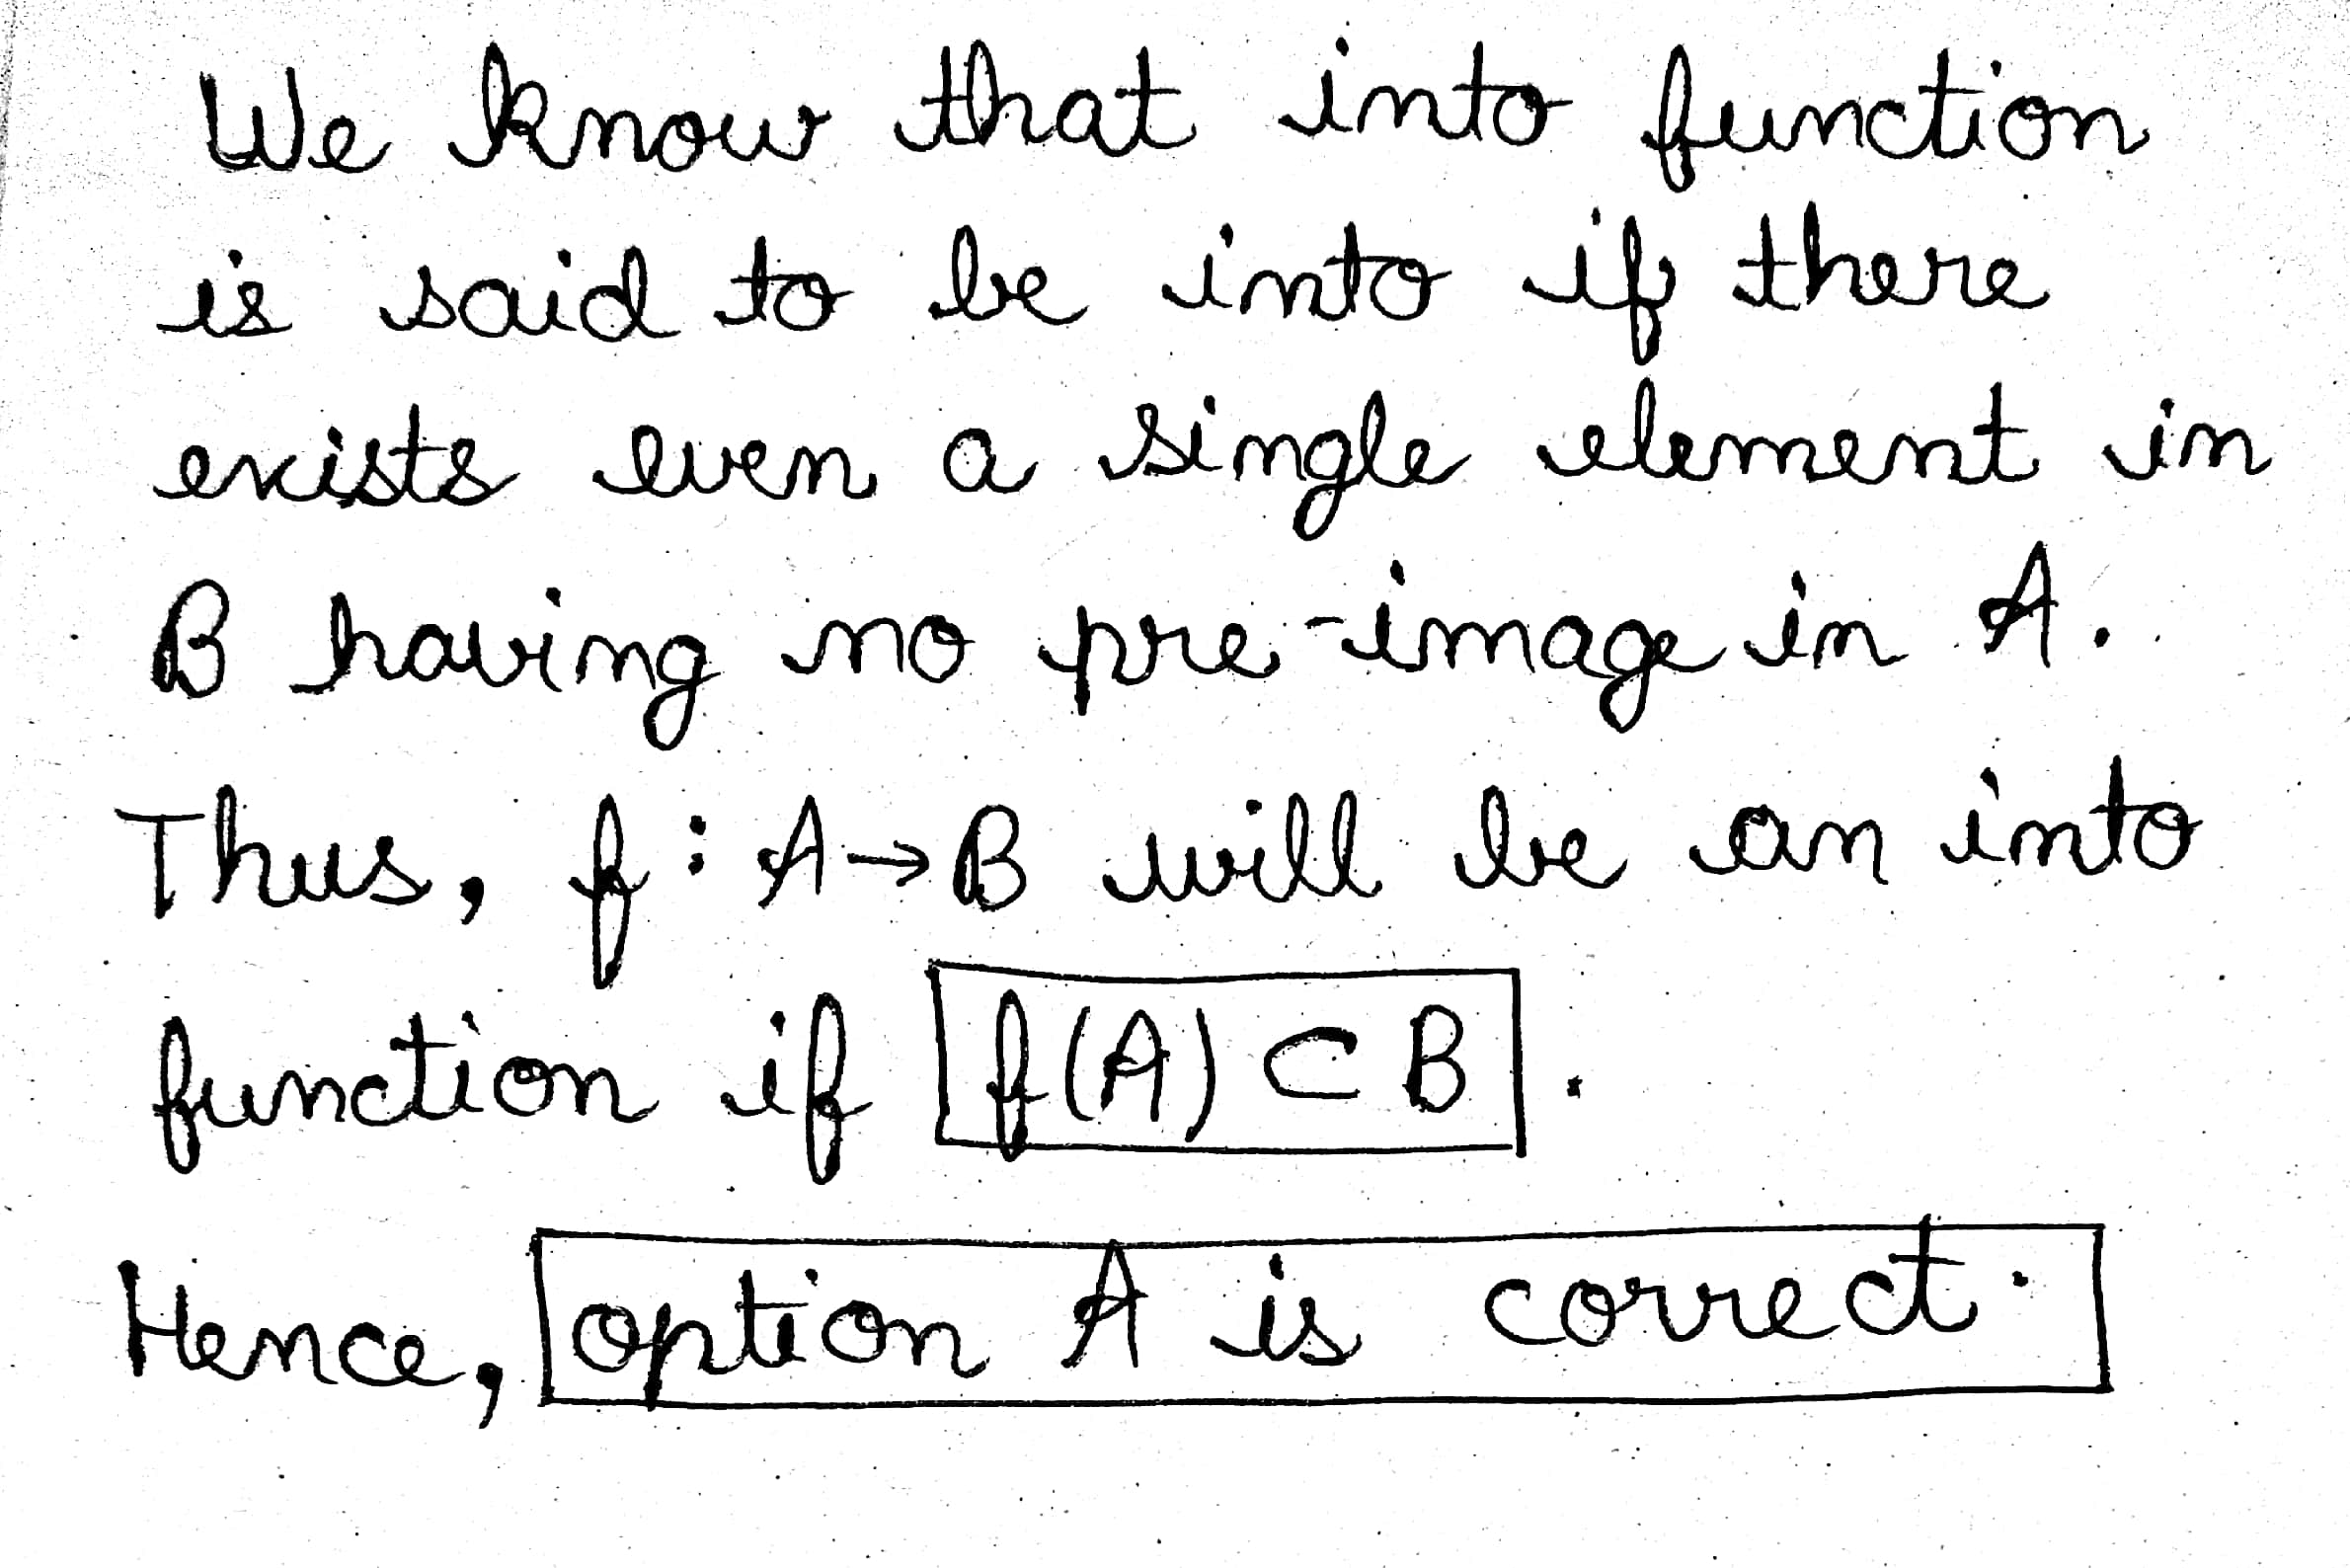 We know that into function
is said to be into if there
exists even a single element in
B having no pre-image in A.
Thus, f : A → B will be an into
function if f(A) ⊂ B.
Hence, option A is correct.